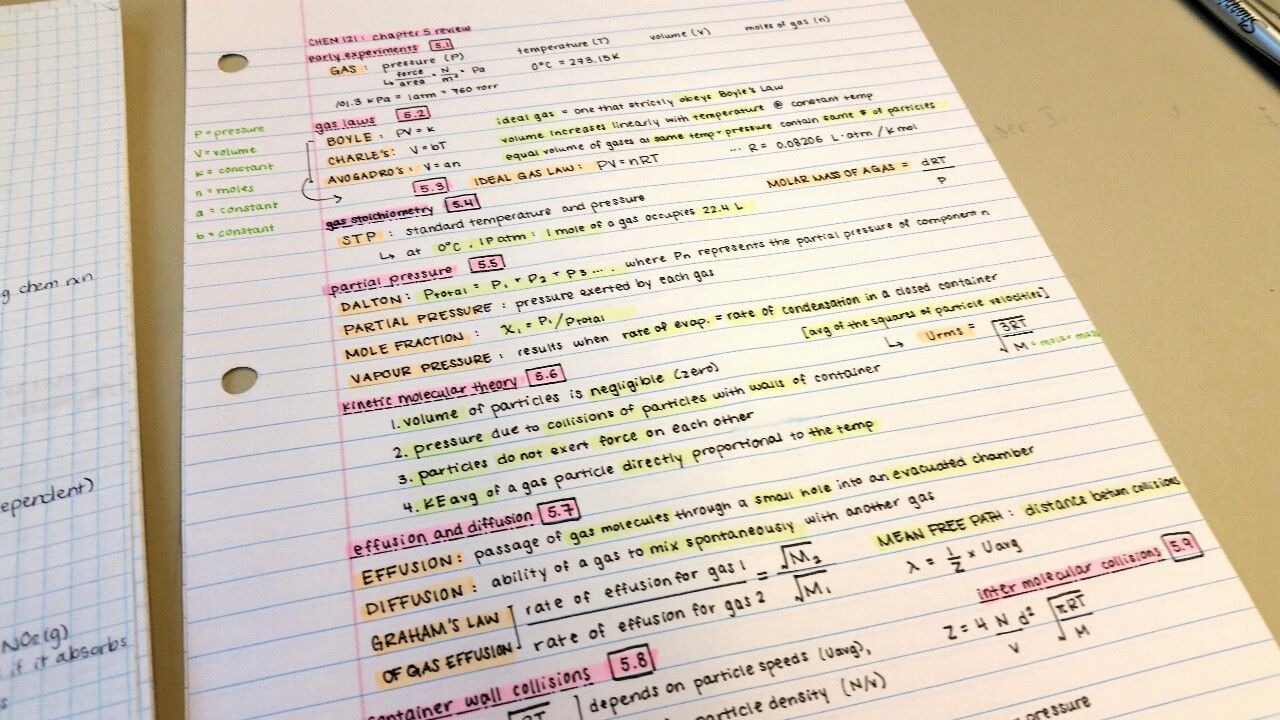 CHEM 121: chapter 5 review
early experiments 5.1
GAS: pressure (P) temperature (T) volume (V) moles of gas (n)
↳ force/area = N/m² = Pa 0°C = 273.15K
101.3 kPa = 1atm = 760 torr
gas laws 5.2
ideal gas = one that strictly obeys Boyle's Law
BOYLE: PV = k
volume increases linearly with temperature @ constant temp
CHARLE'S: V = bT
equal volume of gases at same temp + pressure contain same # of particles
AVOGADRO'S: V = an
P = pressure
V = volume
k = constant
n = moles
a = constant
b = constant
5.3 IDEAL GAS LAW: PV = nRT ... R = 0.08206 L·atm / K mol
gas stoichiometry 5.4
MOLAR MASS OF A GAS = dRT/P
STP: standard temperature and pressure
↳ at 0°C, 1P atm: 1 mole of a gas occupies 22.4 L
partial pressure 5.5
DALTON: Ptotal = P1 + P2 + P3 .... where Pn represents the partial pressure of component n
PARTIAL PRESSURE: pressure exerted by each gas
MOLE FRACTION: X1 = P1/Ptotal
VAPOUR PRESSURE: results when rate of evap. = rate of condensation in a closed container
kinetic molecular theory 5.6
[avg of the squares of particle velocities]
↳ Urms = √3RT/M = molar mass
1. volume of particles is negligible (zero)
2. pressure due to collisions of particles with walls of container
3. particles do not exert force on each other
4. KEavg of a gas particle directly proportional to the temp
effusion and diffusion 5.7
EFFUSION: passage of gas molecules through a small hole into an evacuated chamber
DIFFUSION: ability of a gas to mix spontaneously with another gas
GRAHAM'S LAW OF GAS EFFUSION] rate of effusion for gas 1 / rate of effusion for gas 2 = √M2/√M1
MEAN FREE PATH: distance betwn collisions
λ = 1/Z × Uavg
inter molecular collisions 5.9
Z = 4 N/V d² √πRT/M
container wall collisions 5.8
RT ] depends on particle speeds (Uavg),
particle density (N/V)
pressure
g chem rxn
ependent)
NO2(g)
if it absorbs